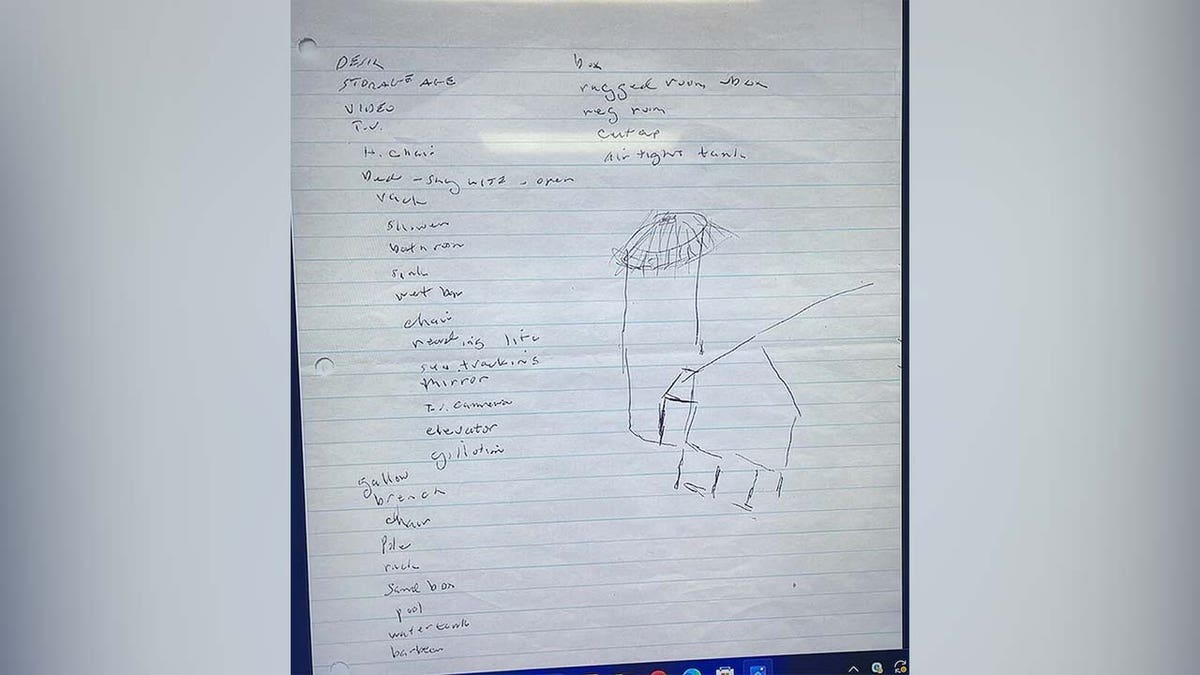 STORAGE AGE
VIDEO
T.V.
H. chair
Bed - - open
rack
shower
bath room
sink
wet bar
chair
reading lite
sun tracking
mirror
T.V. camera
elevator
gillotin
gallow
chair
Pole
rack
Sand box
pool
water tank
box
rugged room box
reg room
cut up
air tight tank